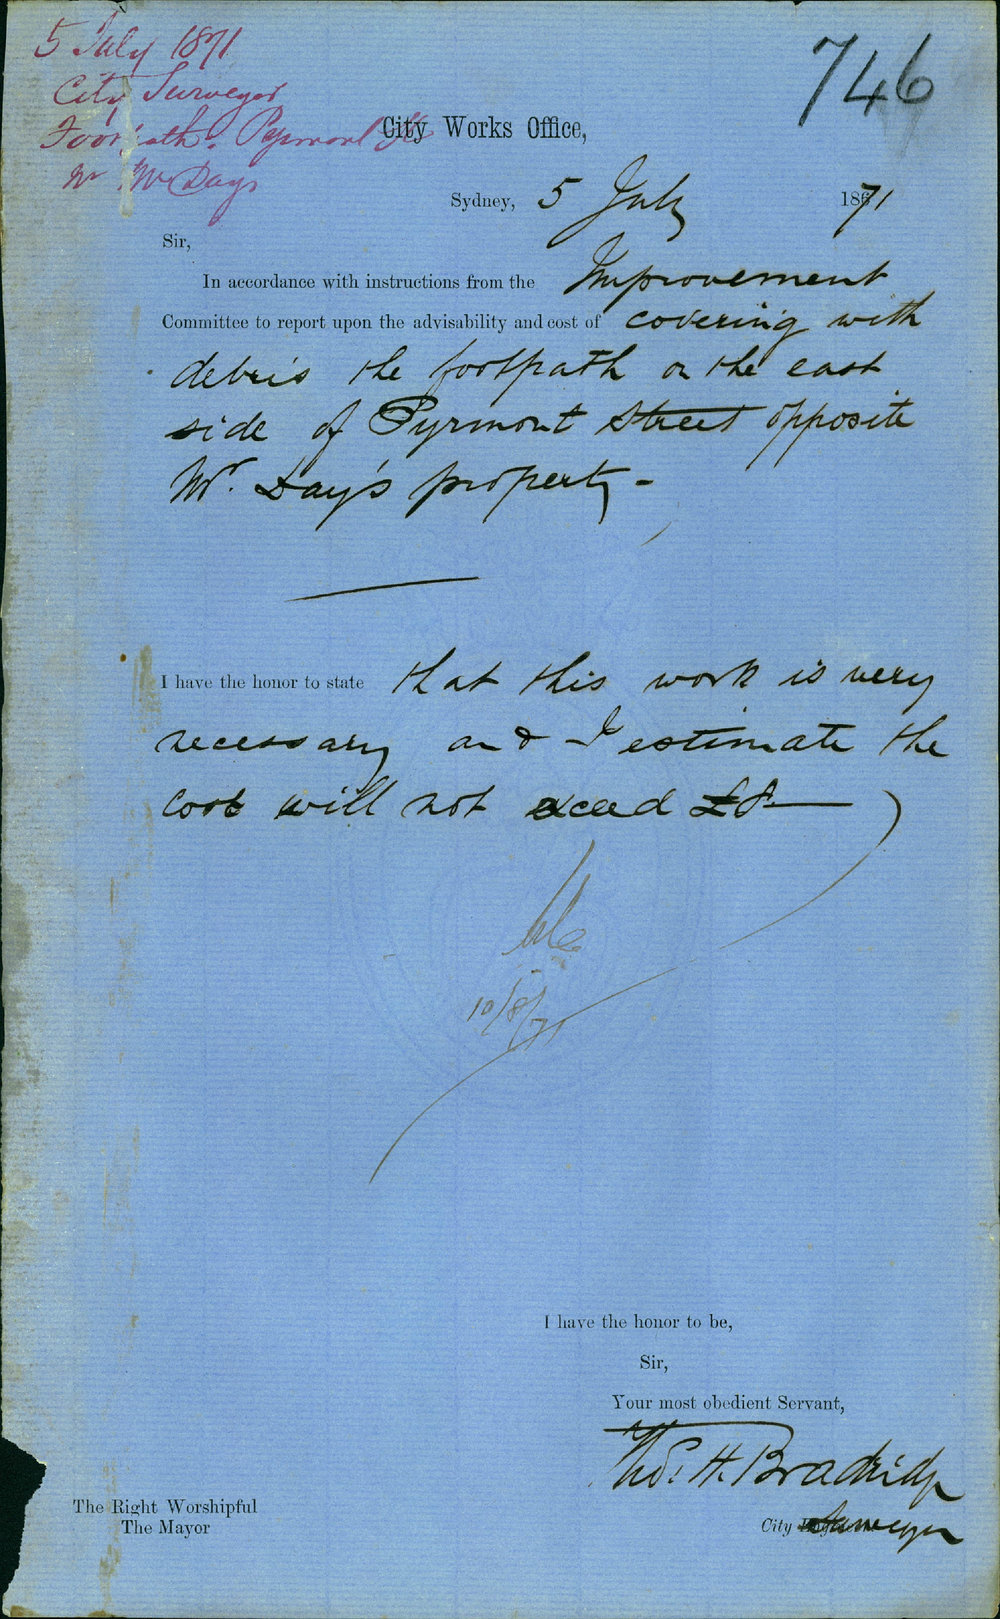 5 July 1871
City Surveyor
Footpath. Pyrmont St
Nr Mr Days
746
City Works Office,
Sydney, 5 July 1871
Sir,
In accordance with instructions from the Improvement
Committee to report upon the advisability and cost of covering with
debris the footpath on the east
side of Pyrmont Street opposite
Mr. Day's property -
I have the honor to state that this work is very
necessary and I estimate the
cost will not exceed £8
10/8/71
I have the honor to be,
Sir,
Your most obedient Servant,
Thos. H. Bradridge
City Surveyor
The Right Worshipful
The Mayor